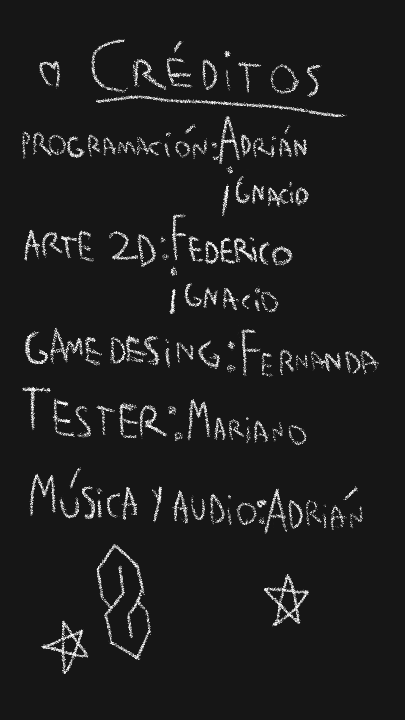 CRÉDITOS
PROGRAMACIÓN: ADRIÁN
IGNACIO
ARTE 2D: FEDERICO
IGNACIO
GAME DESING: FERNANDA
TESTER: MARIANO
MÚSICA Y AUDIO: ADRIÁN